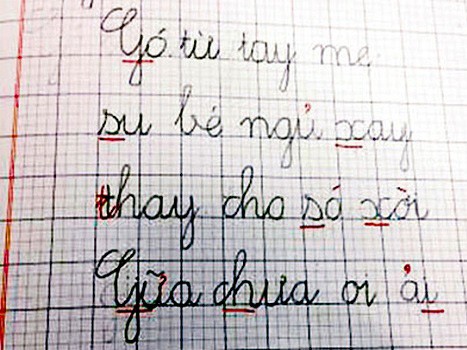 Gó từ tay mẹ
su bé ngủ xay
thay cho só xòi
Giữa chưa oi ải